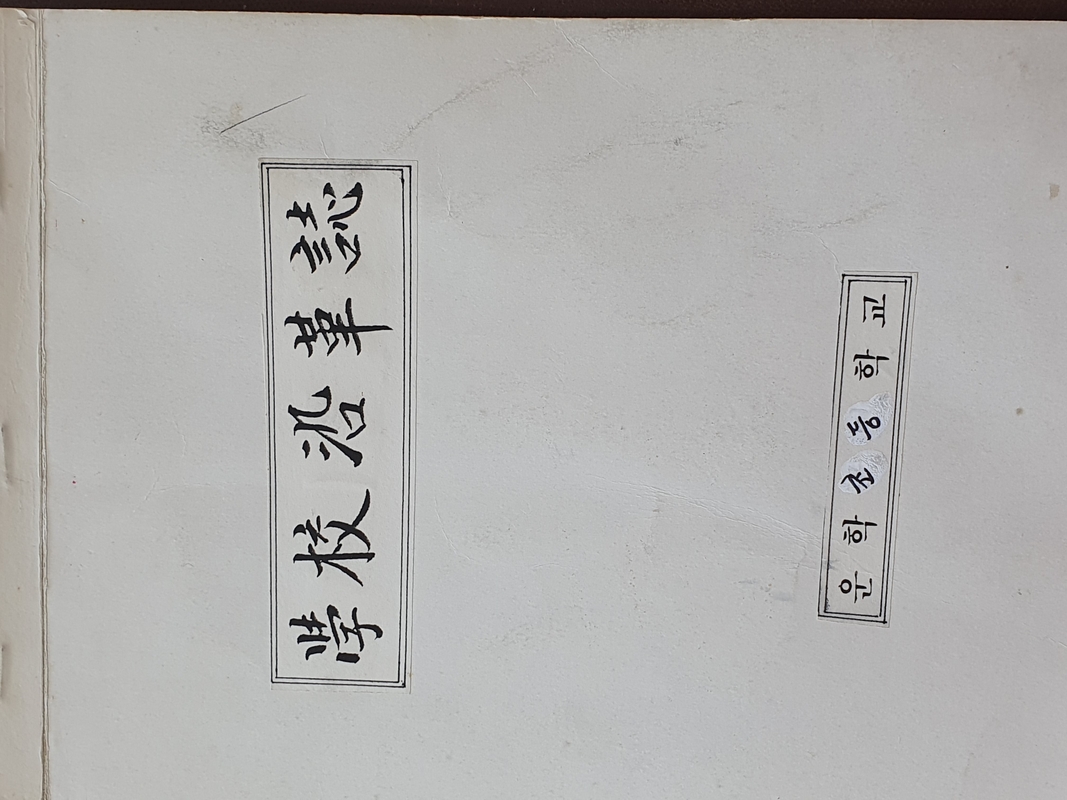 学校沿革誌
운학초등학교